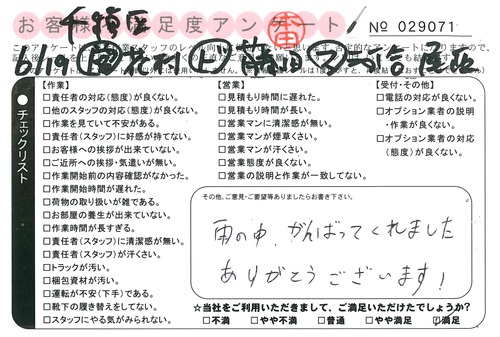 お客様満足度アンケート
千種区
No 029071
6/19
チェックリスト
【作業】
□責任者の対応(態度)が良くない。
□他のスタッフの対応(態度)が良くない。
□作業を見ていて不安がある。
□責任者(スタッフ)に好感が持てない。
□お客様への挨拶が出来ていない。
□ご近所への挨拶・気遣いが無い。
□作業開始前の内容確認がなかった。
□作業開始時間が遅れた。
□荷物の取り扱いが雑である。
□お部屋の養生が出来ていない。
□作業時間が長すぎる。
□責任者(スタッフ)に清潔感が無い。
□責任者(スタッフ)が汗くさい。
□トラックが汚い。
□梱包資材が汚い。
□運転が不安(下手)である。
□靴下の履き替えをしてない。
□スタッフにやる気がみられない。
【営業】
□見積もり時間に遅れた。
□見積もり時間が長い。
□営業マンに清潔感が無い。
□営業マンが煙草くさい。
□営業マンが汗くさい。
□営業態度が良くない。
□営業の説明と作業が一致してない。
【受付・その他】
□電話の対応が良くない。
□オプション業者の説明
・作業が良くない。
□オプション業者の対応
(態度)が良くない。
その他、ご意見・ご要望等ありましたらお書き下さい。
雨の中 がんばってくれました
ありがとうございます!
☆当社をご利用いただきまして、ご満足いただけたでしょうか?
□不満 □やや不満 □普通 □やや満足 □満足